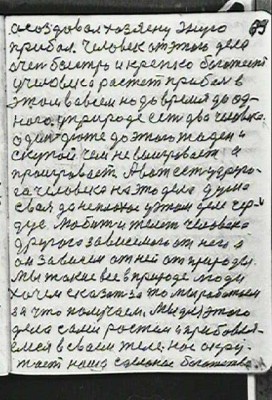 а создовал хозяену Эную 69
прибал. Человек от этого дела
очен быстро и крепко богатеит
у человека растет прибал в
этом вовсем но до время до од-
ного. у природе ест два человека
один дюже до этого жаден и
скупой, чем не выигрывает и
проигривает. А вот ест у друго-
га человека на это дела душа
своя до не у этом деле сер-
дце. Любит и жалеит человека
другого зависемого от него а
он зависем от неё от природы.
Мы такие все в природе люди
хочем сказат за то мы работаем
за что получаем. Мы для этого
дела сами ростем и прибовля-
емся в своем теле. нас окру-
жает наша сделаное богатства.